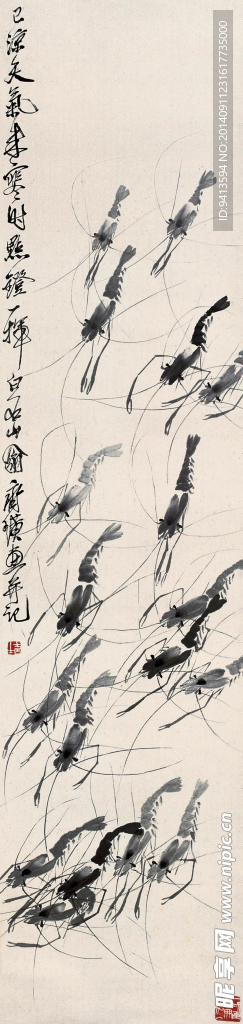 已涼天氣未寒時點鐙一揮白石山翁齊璜畫并記
ID:9413594 NO:20140911231617735000
昵享网 www.nipic.cn